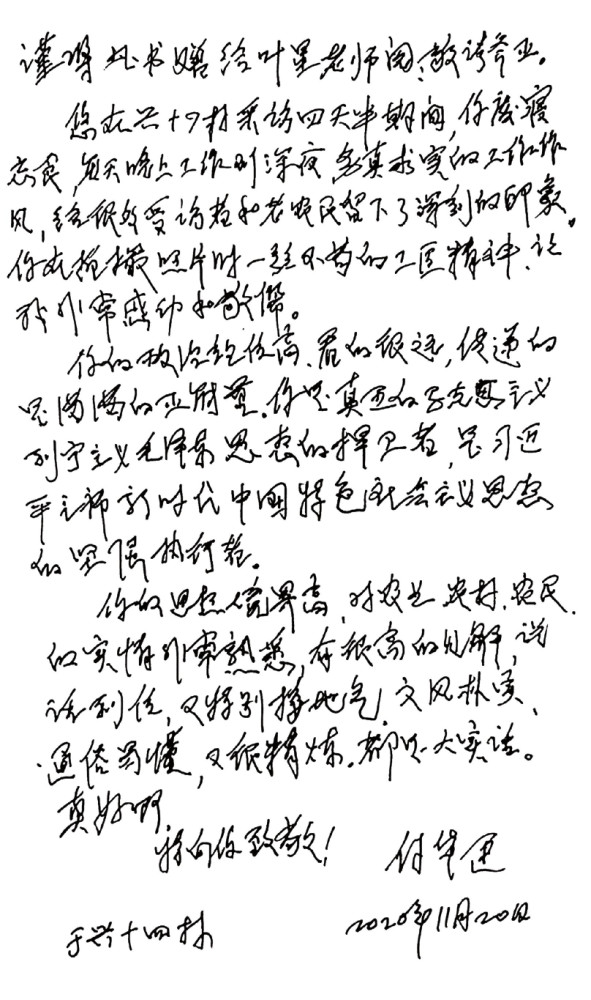 谨将此书赠给叶星老师阅,敬请斧正。
您在兴十四村采访四天半期间,你废寝
忘食,每天晚上工作到深夜,认真求实的工作作
风,给很多受访者和老农民留下了深刻的印象。
你在拍摄照片时一丝不苟的工匠精神,让
我非常感动和敬佩。
你的政治站位高,看的很远,传递的
是满满的正能量。你是真正的马克思主义
列宁主义毛泽东思想的捍卫者,是习近
平主席新时代中国特色社会主义思想
的坚强执行者。
你的思想境界高,对农业、农村、农民
的实情非常熟悉,有很高的见解,说
话到位,又特别接地气,文风朴实、
通俗易懂,又很精炼。都是大实话。
真好啊
特向你致敬!
付华廷
于兴十四村
2020年11月20日